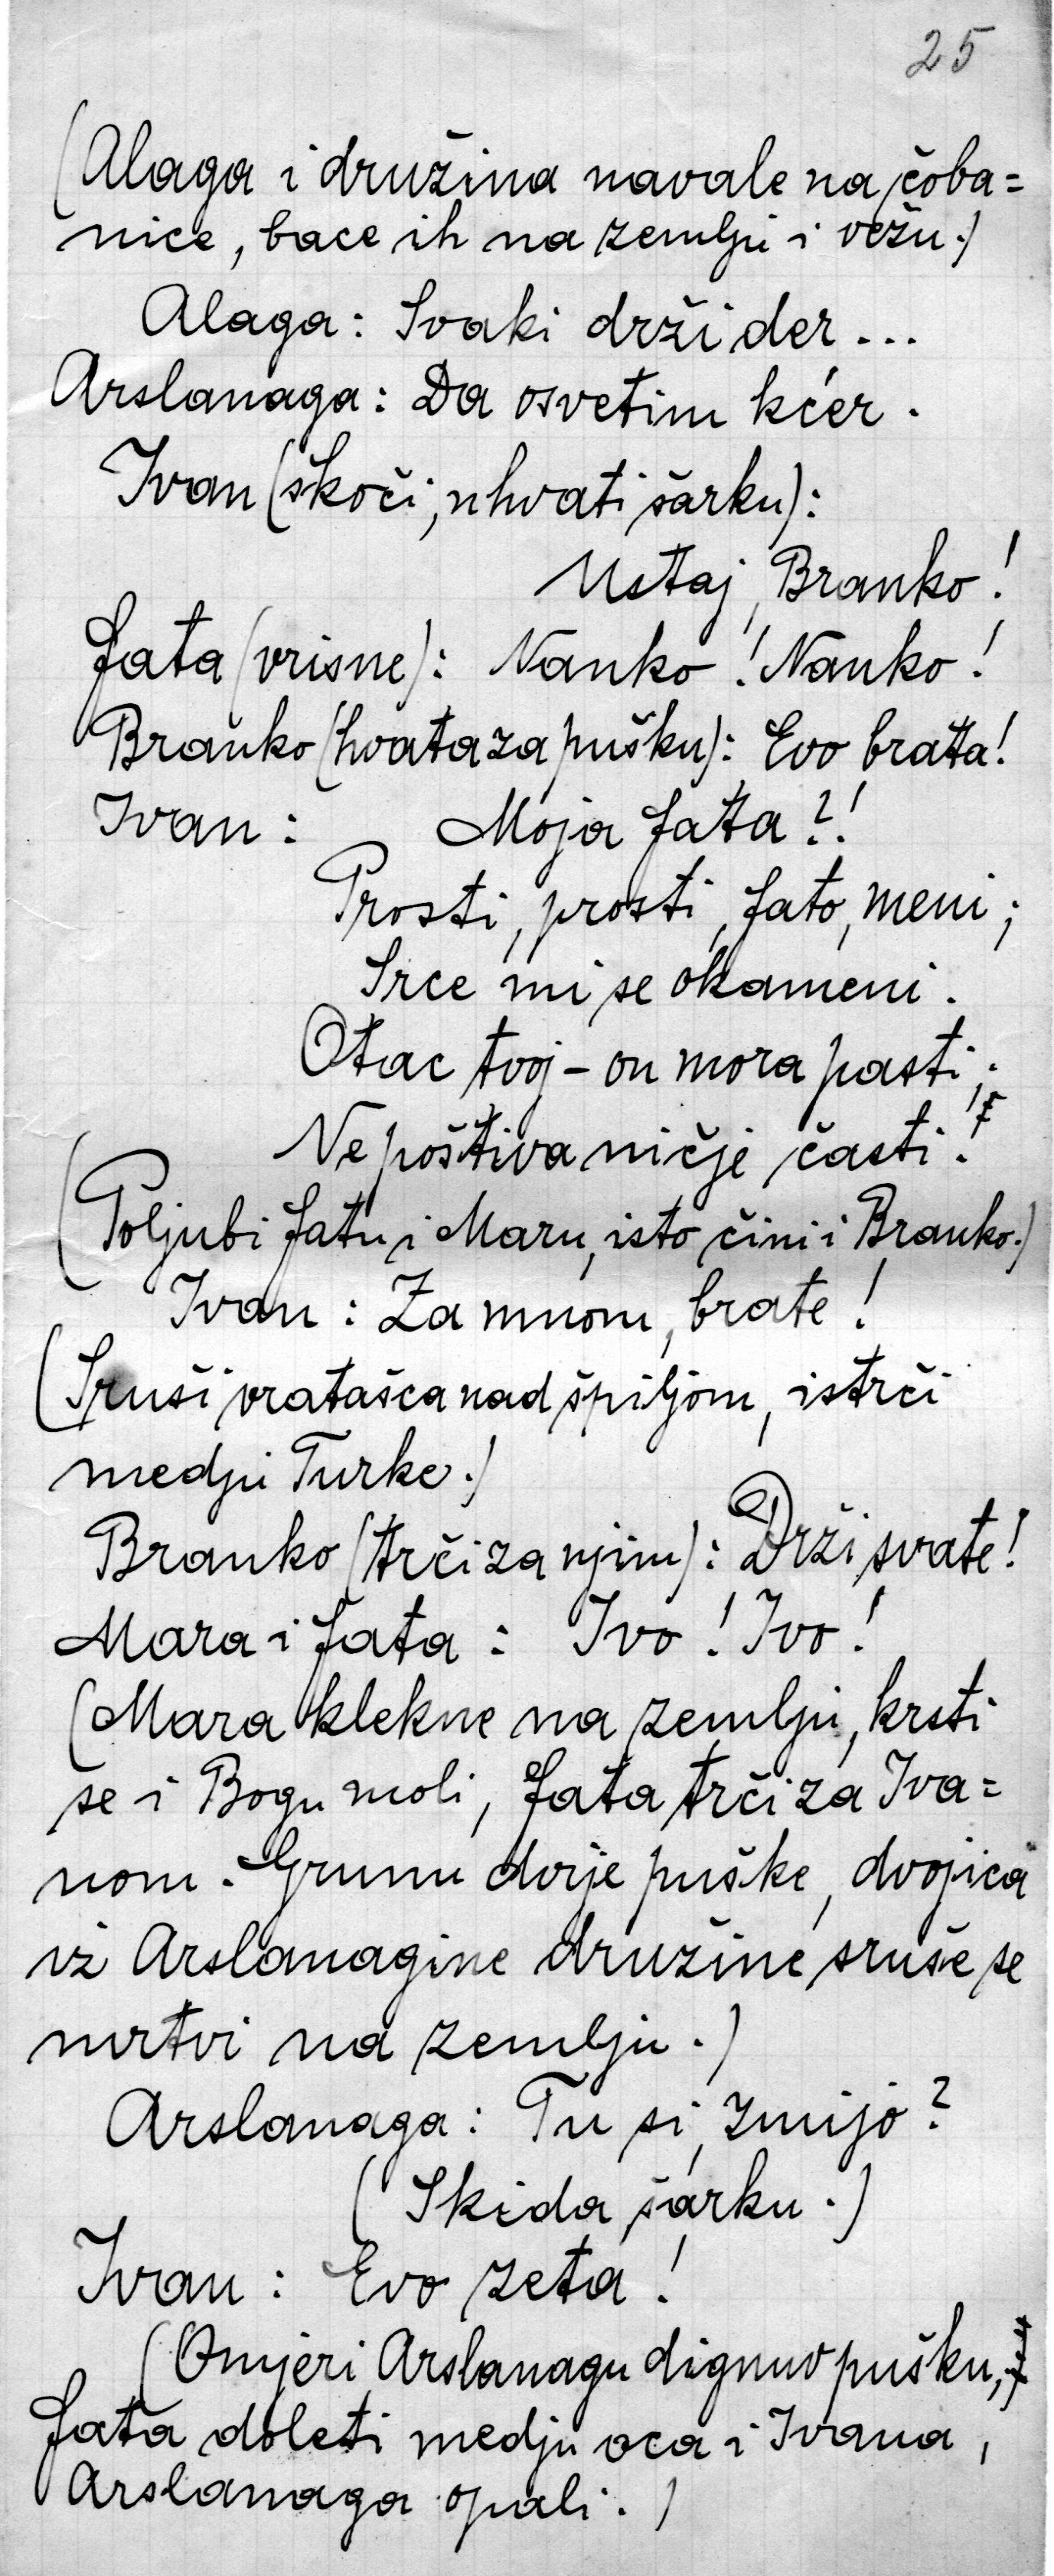 25
(Alaga i družina navale na čoba=
nice, bace ih na zemlju i vežu.)
Alaga: Svaki drži der...
Arslanaga: Da osvetim kćer.
Ivan (skoči, uhvati šarku):
Ustaj, Branko!
Fata (vrisne): Nanko! Nanko!
Branko (hvata za pušku): Evo brata!
Ivan: Moja Fata?!
Prosti, prosti, Fato, meni;
Srce mi se okameni.
Otac tvoj - on mora pasti;
Ne poštiva ničje časti!
(Poljubi Fatu i Maru, isto čini i Branko.)
Ivan: Za mnom, brate!
(Sruši vratašca nad špiljom, istrči
medju Turke.)
Branko (trči za njim): Drži svate!
Mara i Fata: Ivo! Ivo!
(Mara klekne na zemlju, krsti
se i Bogu moli, Fata trči za Iva=
nom. Grunu dvije puške, dvojica
iz Arslanagine družine sruše se
mrtvi na zemlju.)
Arslanaga: Tu si, zmijo?
(Skida šarku.)
Ivan: Evo zeta!
(Omjeri Arslanagu dignuv pušku,
Fata doleti medju oca i Ivana,
Arslanaga opali.)